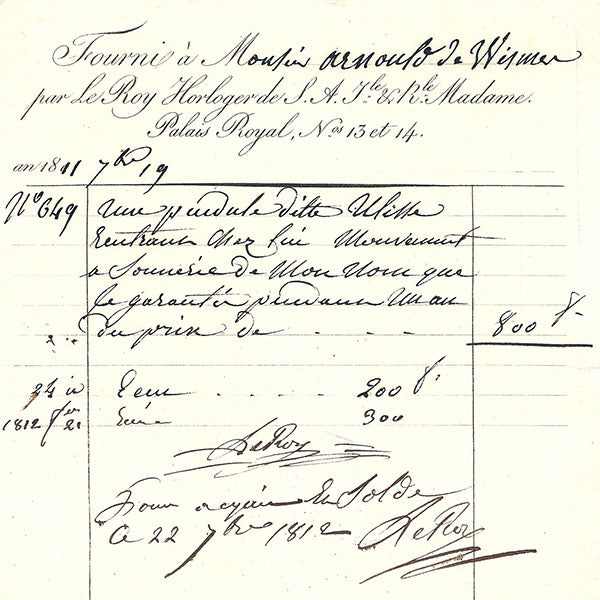 Fourni à Monsier arnould de Wismes
par Le Roy Horloger de S. A. Ile. & Rle. Madame.
Palais Royal, Nos 13 et 14.
an 1811 7bre 19
No 649 une pendule ditte Ulisse
Rentrant chez lui Mouvement
a Sonnerie de Mon Nom que
Je garantie pendant Un an
du prix de - - - - 800 f.
24 Reçu - - - - 200 f.
1812 21 300
LeRoy
Pour acquit En Solde
Ce 22 7bre 1812 LeRoy